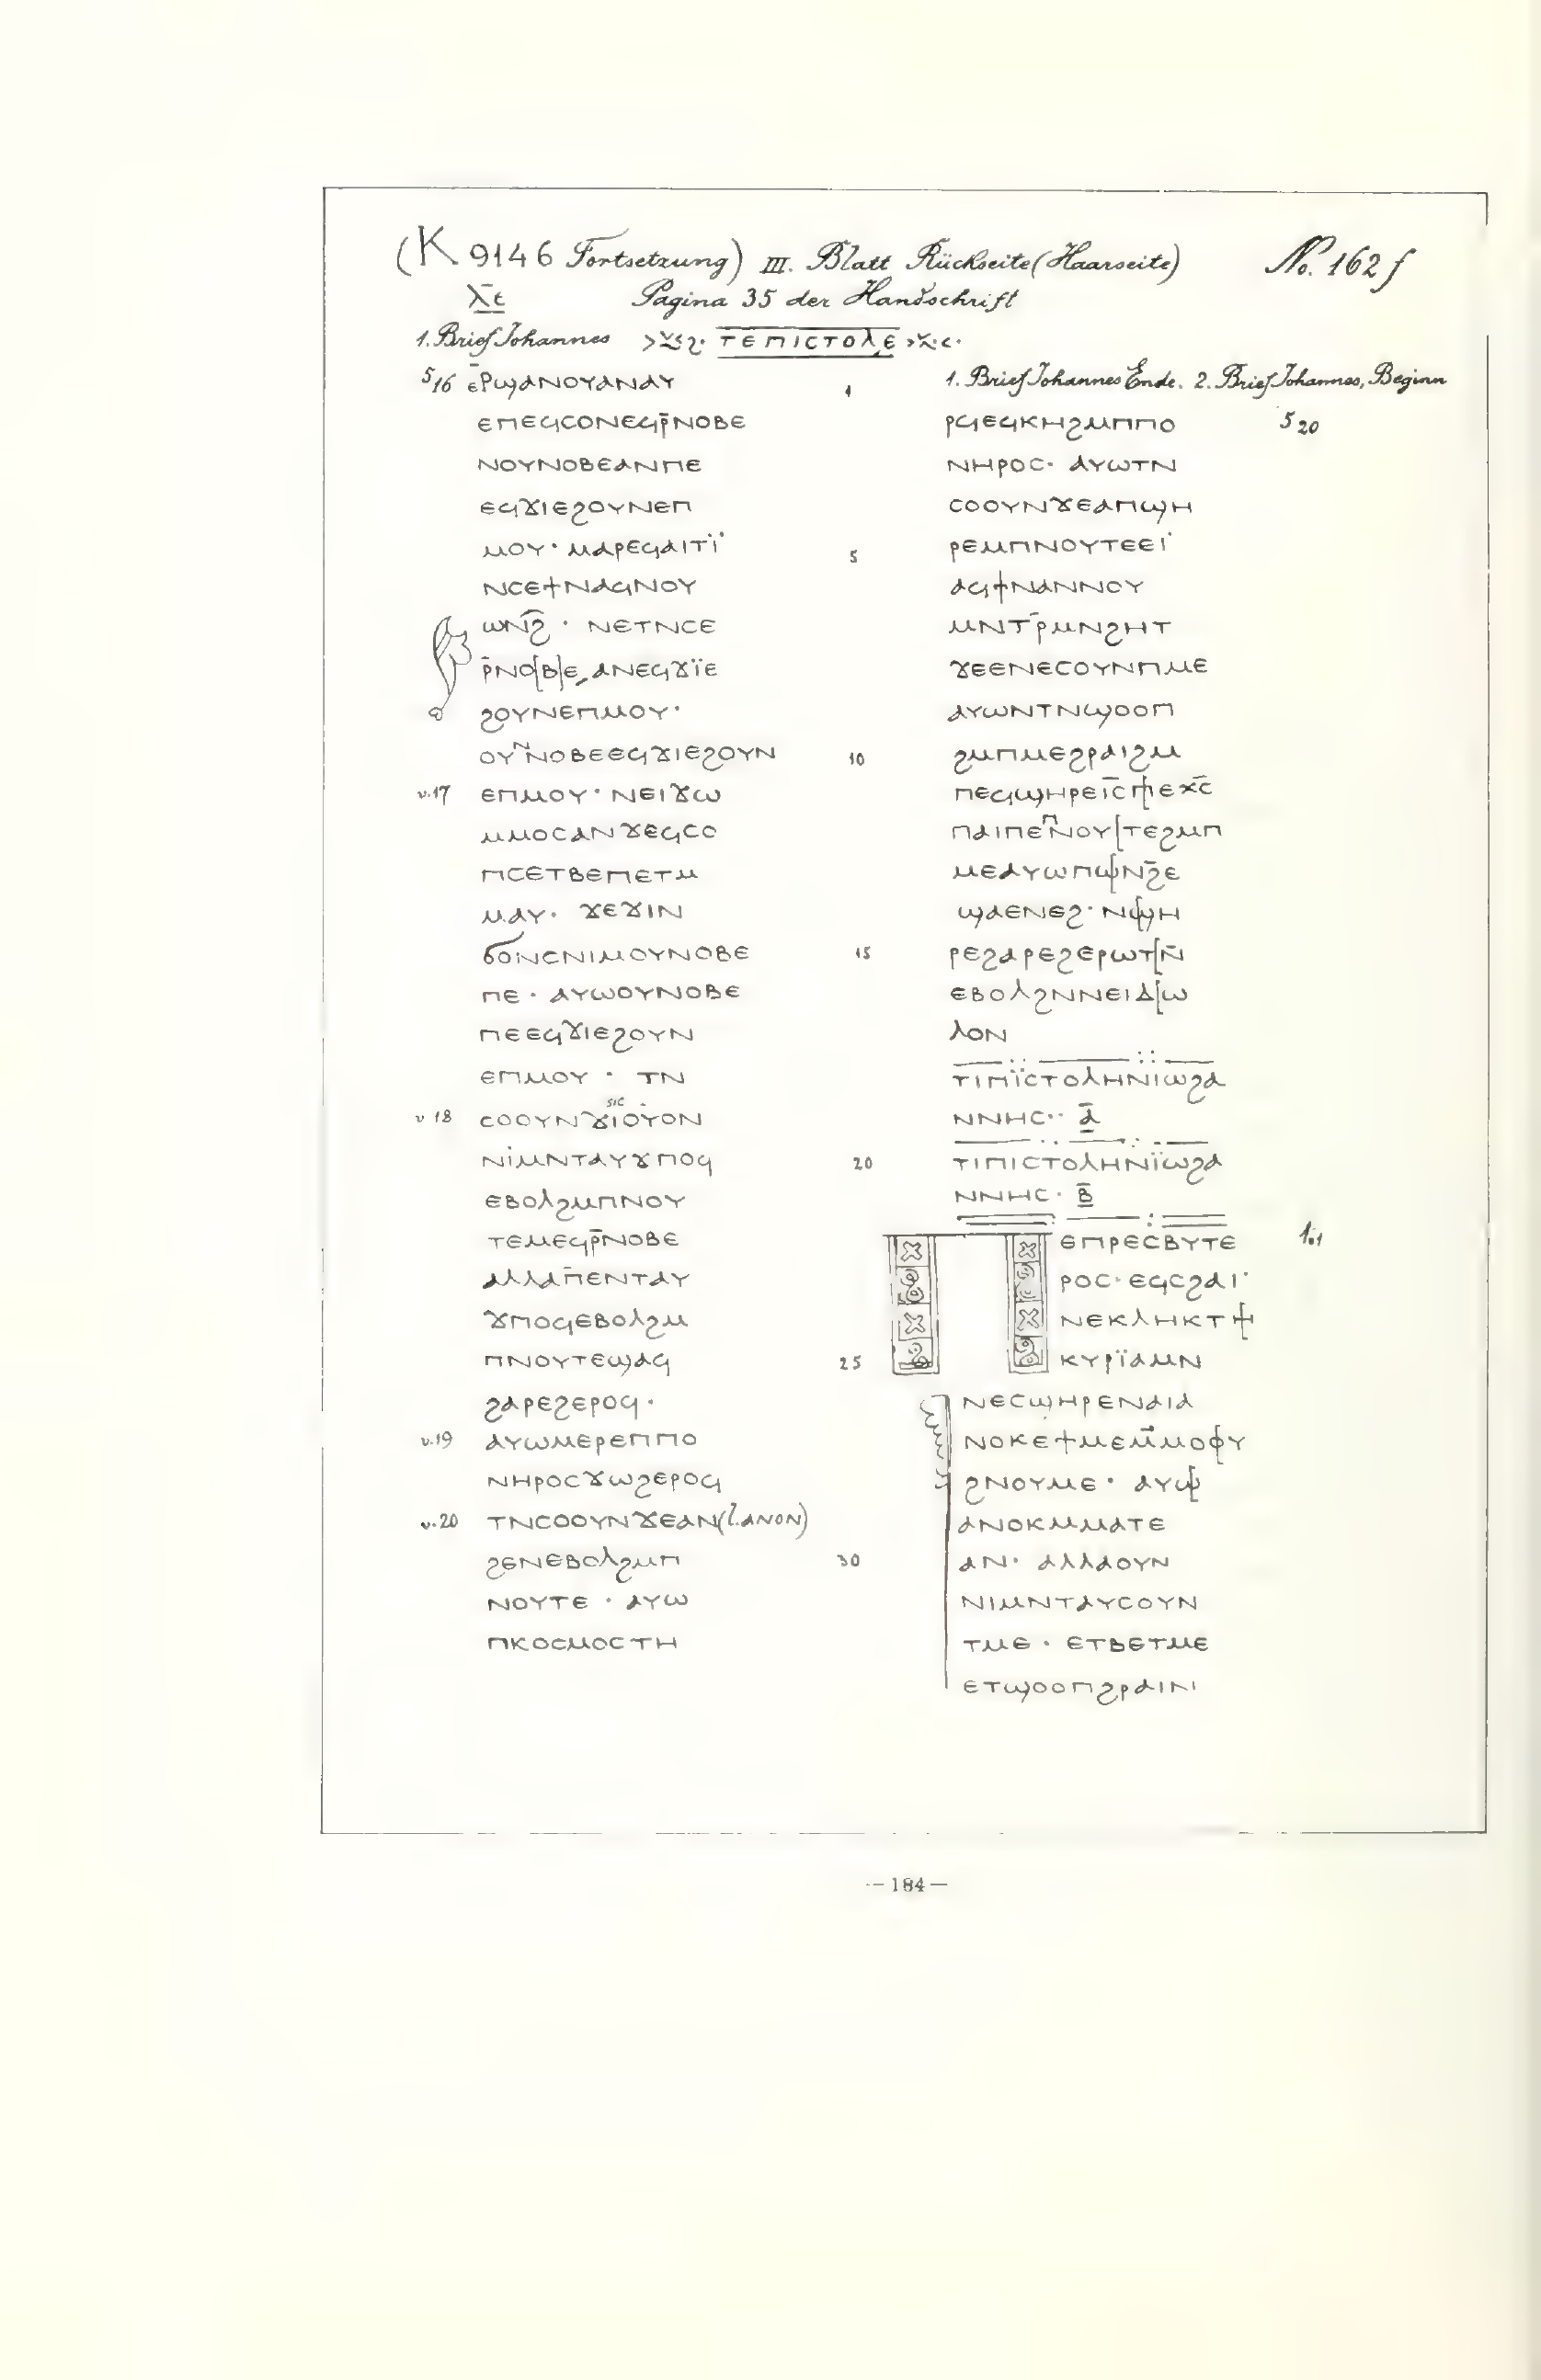 (K 9146 Fortsetzung) III. Blatt Rückseite (Haarseite) No. 162 f
ⲗ̅ⲉ̅ Pagina 35 der Handschrift
1. Brief Johannes ⲧⲉⲡⲓⲥⲧⲟⲗⲉ
5,16 ⲉⲣϣⲁⲛⲟⲩⲁⲛⲁⲩ
ⲉⲡⲉϥⲥⲟⲛⲉϥⲣ̄ⲛⲟⲃⲉ
ⲛⲟⲩⲛⲟⲃⲉⲁⲛⲡⲉ
ⲉϥϫⲓⲉϩⲟⲩⲛⲉⲡ
ⲙⲟⲩ· ⲙⲁⲣⲉϥⲁⲓⲧⲓ̈ 5
ⲛⲥⲉϯⲛⲁϥⲛⲟⲩ
ⲱⲛϩ̅ · ⲛⲉⲧⲛⲥⲉ
ⲣ̄ⲛⲟ[ⲃ]ⲉ ⲁⲛⲉϥϫⲓ̈ⲉ
ϩⲟⲩⲛⲉⲡⲙⲟⲩ·
ⲟⲩⲛⲛⲟⲃⲉⲉϥϫⲓⲉϩⲟⲩⲛ 10
v.17 ⲉⲡⲙⲟⲩ· ⲛⲉⲓϫⲱ
ⲙⲙⲟⲥⲁⲛϫⲉϥⲥⲟ
ⲡⲥⲉⲧⲃⲉⲡⲉⲧⲙ
ⲙⲁⲩ· ϫⲉϫⲓⲛ
ϭⲟⲛⲥⲛⲓⲙⲟⲩⲛⲟⲃⲉ 15
ⲡⲉ · ⲁⲩⲱⲟⲩⲛⲟⲃⲉ
ⲡⲉⲉϥϫⲓⲉϩⲟⲩⲛ
ⲉⲡⲙⲟⲩ · ⲧⲛ
sic
v 18 ⲥⲟⲟⲩⲛϫⲓⲟⲩⲟⲛ
ⲛⲓⲙⲛⲧⲁⲩϫⲡⲟϥ 20
ⲉⲃⲟⲗϩⲙⲡⲛⲟⲩ
ⲧⲉⲙⲉϥⲣ̄ⲛⲟⲃⲉ
ⲁⲗⲗⲁⲡⲉⲛⲧⲁⲩ
ϫⲡⲟϥⲉⲃⲟⲗϩⲙ
ⲡⲛⲟⲩⲧⲉϣⲁϥ 25
ϩⲁⲣⲉϩⲉⲣⲟϥ·
v.19 ⲁⲩⲱⲙⲉⲣⲉⲡⲡⲟ
ⲛⲏⲣⲟⲥϫⲱϩⲉⲣⲟϥ
v.20 ⲧⲛⲥⲟⲟⲩⲛϫⲉⲁⲛ (l. ⲁⲛⲟⲛ)
ϩⲉⲛⲉⲃⲟⲗϩⲙⲡ 30
ⲛⲟⲩⲧⲉ · ⲁⲩⲱ
ⲡⲕⲟⲥⲙⲟⲥⲧⲏ
1. Brief Johannes Ende. 2. Brief Johannes, Beginn
ⲣϥⲉϥⲕⲏϩⲙⲡⲡⲟ 5 20
ⲛⲏⲣⲟⲥ· ⲁⲩⲱⲧⲛ
ⲥⲟⲟⲩⲛϫⲉⲁⲡϣⲏ
ⲣⲉⲙⲡⲛⲟⲩⲧⲉⲉⲓ
ⲁϥϯⲛⲁⲛⲛⲟⲩ
ⲙⲛⲧⲣ̄ⲙⲛϩⲏⲧ
ϫⲉⲉⲛⲉⲥⲟⲩⲛⲡⲙⲉ
ⲁⲩⲱⲛⲧⲛϣⲟⲟⲡ
ϩⲙⲡⲙⲉϩⲣⲁⲓϩⲙ
ⲡⲉϥϣⲏⲣⲉⲓ̅ⲥ̅ⲡⲉⲭ̅ⲥ̅
ⲡⲁⲓⲡⲉⲡⲛⲟⲩ[ⲧⲉϩⲙⲡ
ⲙⲉⲁⲩⲱⲡⲱⲛϩ̄ⲉ
ϣⲁⲉⲛⲉϩ· ⲛϣⲏ
ⲣⲉϩⲁⲣⲉϩⲉⲣⲱⲧ[ⲛ̄
ⲉⲃⲟⲗϩⲛⲛⲉⲓⲇ[ⲱ
ⲗⲟⲛ
ⲧⲓⲡⲓ̈ⲥⲧⲟⲗⲏⲛⲓⲱϩⲁ
ⲛⲛⲏⲥ·· ⲁ̅
ⲧⲓⲡⲓⲥⲧⲟⲗⲏⲛⲓ̈ⲱϩⲁ
ⲛⲛⲏⲥ· ⲃ̅
ⲡⲉⲡⲣⲉⲥⲃⲩⲧⲉ 1.1
ⲣⲟⲥ· ⲉϥⲥϩⲁⲓ·
ⲛⲉⲕⲗⲏⲕⲧⲏ
ⲕⲩⲣⲓ̈ⲁⲙⲛ
ⲛⲉⲥϣⲏⲣⲉⲛⲁⲓⲁ
ⲛⲟⲕⲉϯⲙⲉⲙⲙⲟⲟⲩ
ϩⲛⲟⲩⲙⲉ· ⲁⲩⲱ
ⲁⲛⲟⲕⲙⲙⲁⲧⲉ
ⲁⲛ· ⲁⲗⲗⲁⲟⲩⲛ
ⲛⲓⲙⲛⲧⲁⲩⲥⲟⲩⲛ
ⲧⲙⲉ · ⲉⲧⲃⲉⲧⲙⲉ
ⲉⲧϣⲟⲟⲡϩⲣⲁⲓⲛ
— 184 —